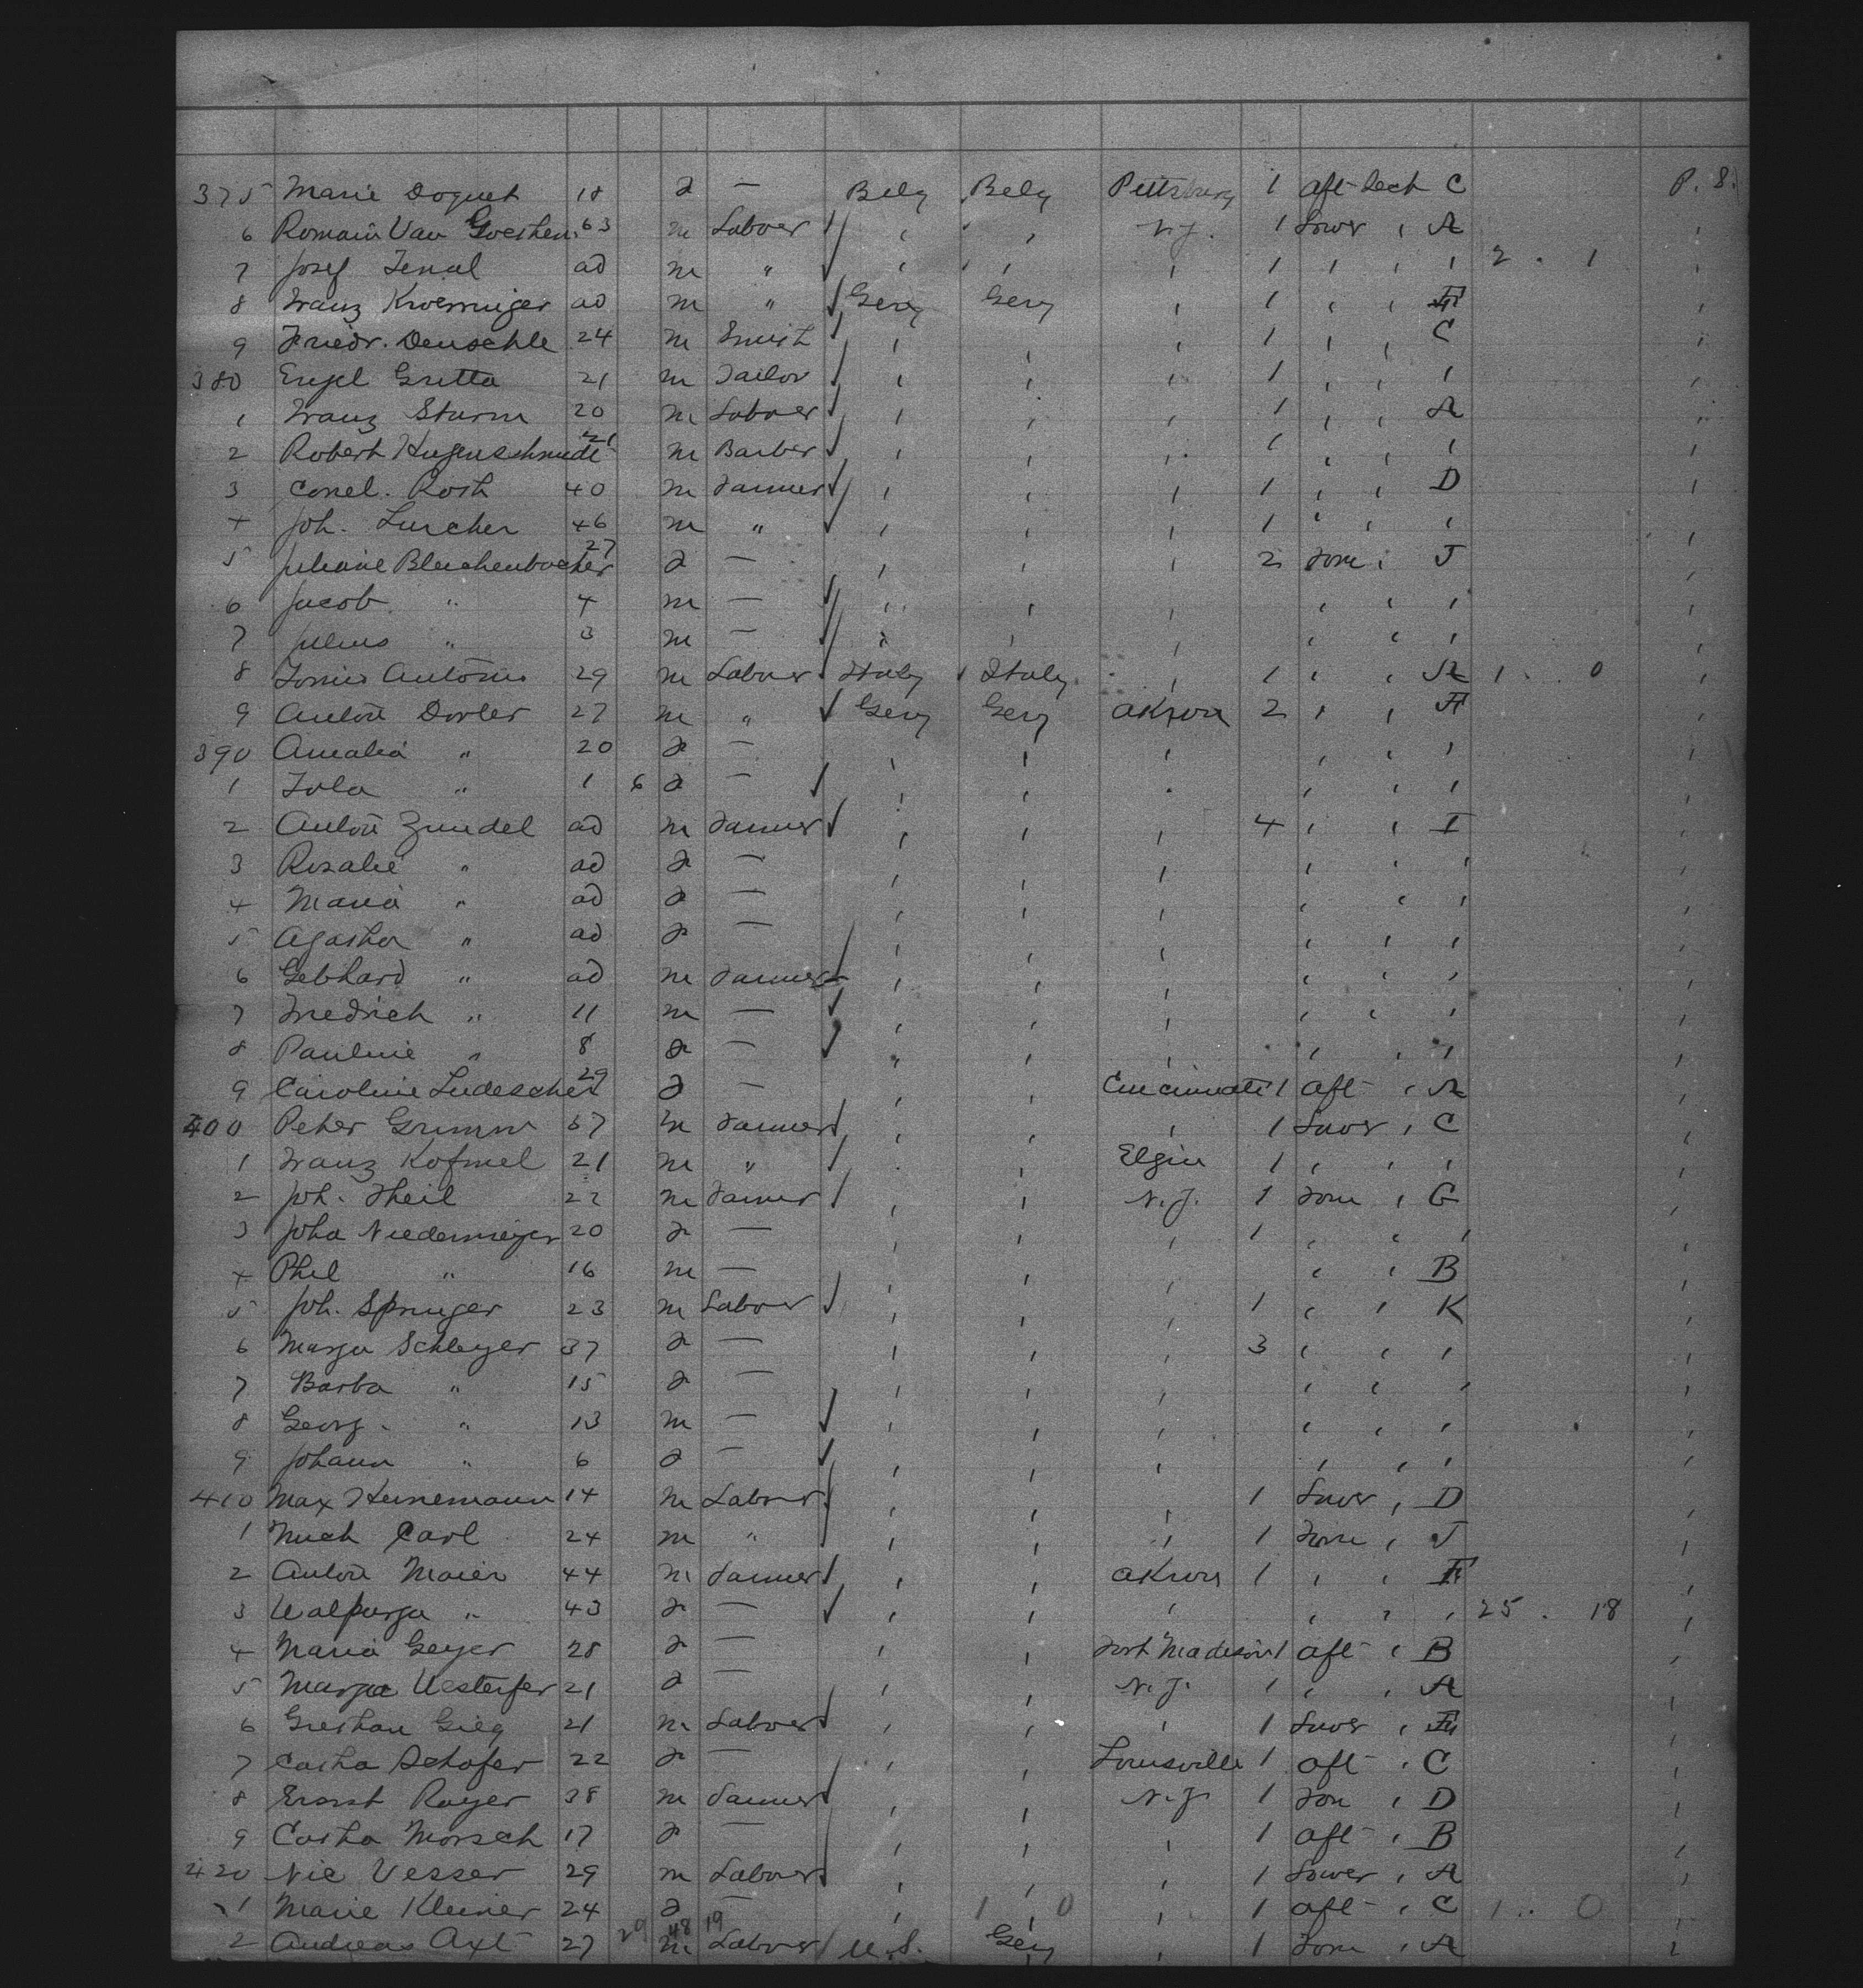 375 Marie Doquet 18 f — Belg Belg Pittsburg 1 aft deck C P. 8.
6 Romain Van Goethem 63 m Labour " " N.Y. 1 Lower " A "
7 Josef ad m " " " " 1 " " " 2 . 1 "
8 Franz ad m " Gery Gery " 1 " " "
9 Friedr. Deuschle 24 m Smith " " " 1 " " C "
380 Engel Gretta 21 m Tailor " " " 1 " " " "
1 Franz Sturm 20 m Labour " " " 1 " " A "
2 Robert Hugenschmidt 21 m Barber " " " 1 " " " "
3 Cornel. Roth 40 m Farmer " " " 1 " " D "
4 Joh. Lurcher 46 m " " " " 1 " " " "
5 Juliane Bleichenbacher 27 f — " " " 2 Forw " J "
6 Jacob " 4 m — " " " " " " "
7 Julius " 3 m — " " " " " " "
8 Antonio 29 m Labour Italy Italy " 1 " " A 1 . . 0 "
9 Anton Dorler 27 m " Gery Gery Akron 2 " " F "
390 Amalia " 20 f — " " " " " " "
1 " 1 6 f — " " " " " " "
2 Anton Zundel ad m Farmer " " " 4 " " I "
3 Rosalie " ad f — " " " " " " "
4 Maria " ad f — " " " " " " "
5 Agatha " ad f — " " " " " " "
6 Gebhard " ad m Farmer " " " " " " "
7 Friedrich " 11 m — " " " " " " "
8 Pauline " 8 f — " " " " " " "
9 Caroline Ludescher 29 f — " " Cincinnati 1 aft " A "
400 Peter Grimm 67 m Farmer " " " 1 Lower " C "
1 Franz Kofmel 21 m " " " Elgin 1 " " " "
2 Joh. Theil 22 m Farmer " " N.Y. 1 Forw " G "
3 Joha Niedermeyer 20 f — " " " 1 " " " "
4 Phil " 16 m — " " " " " B "
5 Joh. Springer 23 m Labour " " " 1 " " K "
6 Marga Schleyer 37 f — " " " 3 " " " "
7 Barba " 15 f — " " " " " " "
8 Georg. " 13 m — " " " " " " "
9 Johann " 6 f — " " " " " " "
410 Max Heinemann 14 m Labour " " " 1 Lower " D "
1 Carl 24 m " " " " 1 Forw " J "
2 Anton Maier 44 m Farmer " " Akron 1 " " F "
3 Walpurga " 43 f — " " " " " " 25 . 18 "
4 Maria Geyer 28 f — " " Fort Madison 1 aft " B "
5 Marga 21 f — " " N.Y. 1 " " A "
6 21 m Labour " " " 1 Lower " "
7 Catha Schafer 22 f — " " Louisville 1 aft " C "
8 Ernst Royer 38 m Farmer " " N.Y. 1 Forw " D "
9 Catha Morsch 17 f — " " " 1 aft " B "
420 Nic Vesser 29 m Labour " " " 1 Lower " A "
1 Marie Kleiner 24 f — " 1 " 0 " 1 aft " C 1 . . 0 "
2 Andreas Axt 27 29 48 19 m Labour U.S. Gery " 1 Forw " A "